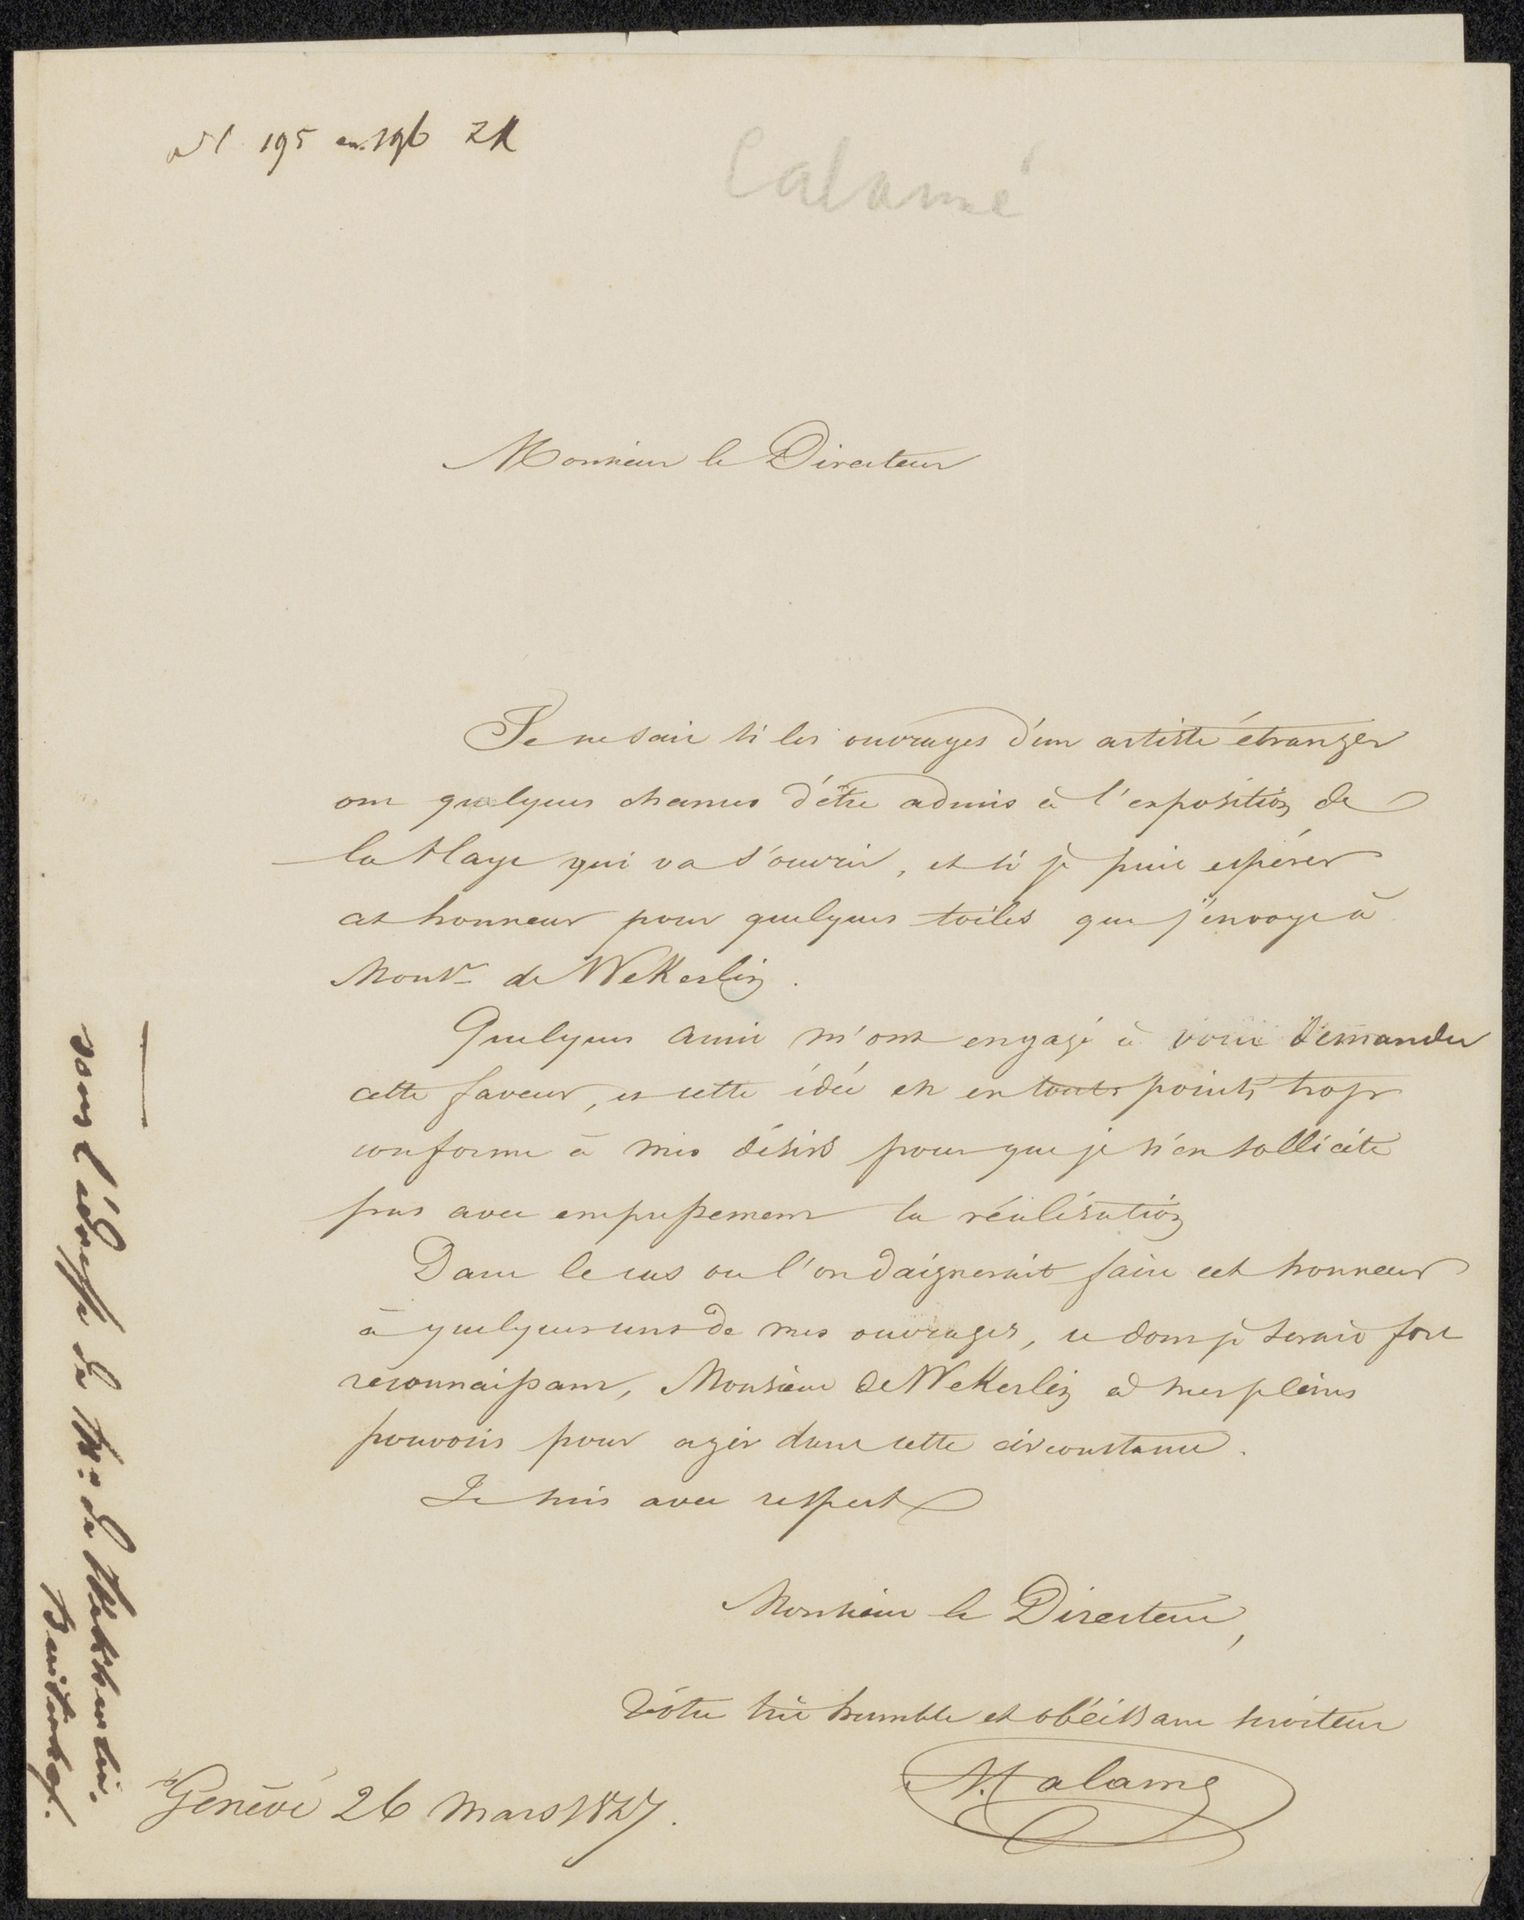 195 en 196 ZK
Calamé
Monsieur le Directeur
Je ne sais si les ouvrages d'un artiste étranger
ont quelques chances d'être admis à l'exposition de
la Haye qui va s'ouvrir, et si je puis espérer
cet honneur pour quelques toiles que j'envoye à
Monsr de Wekerlin.
Quelques amis m'ont engagé à vous demander
cette faveur, et cette idée est en touts points trop
conforme à mes désirs pour que je n'en sollicite
pas avec empressement la réalisation
Dans le cas ou l'on daignerait faire cet honneur
à quelques uns de mes ouvrages, ce dont je serais fort
reconnaissant, Monsieur de Wekerlin a mes pleins
pouvoirs pour agir dans cette circonstance.
Je suis avec respect
Monsieur le Directeur,
Vôtre très humble et obéissant serviteur
A. Calame
Genève 26 Mars 1847.
sous l'adresse de Mr: de Wekherlin.
Buitenhof.